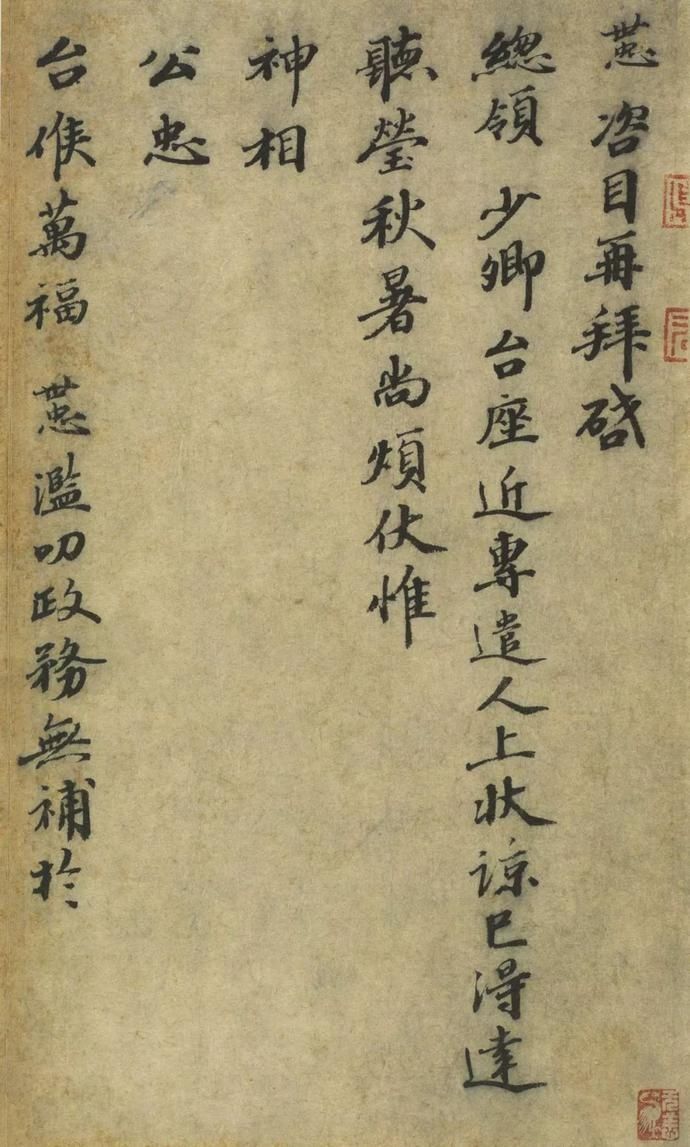 咨目再拜啓
總領少卿台座近專遣人上狀諒已得達
聽瑩秋暑尚煩伏惟
神相
公忠
台候萬福濫叨政務無補於